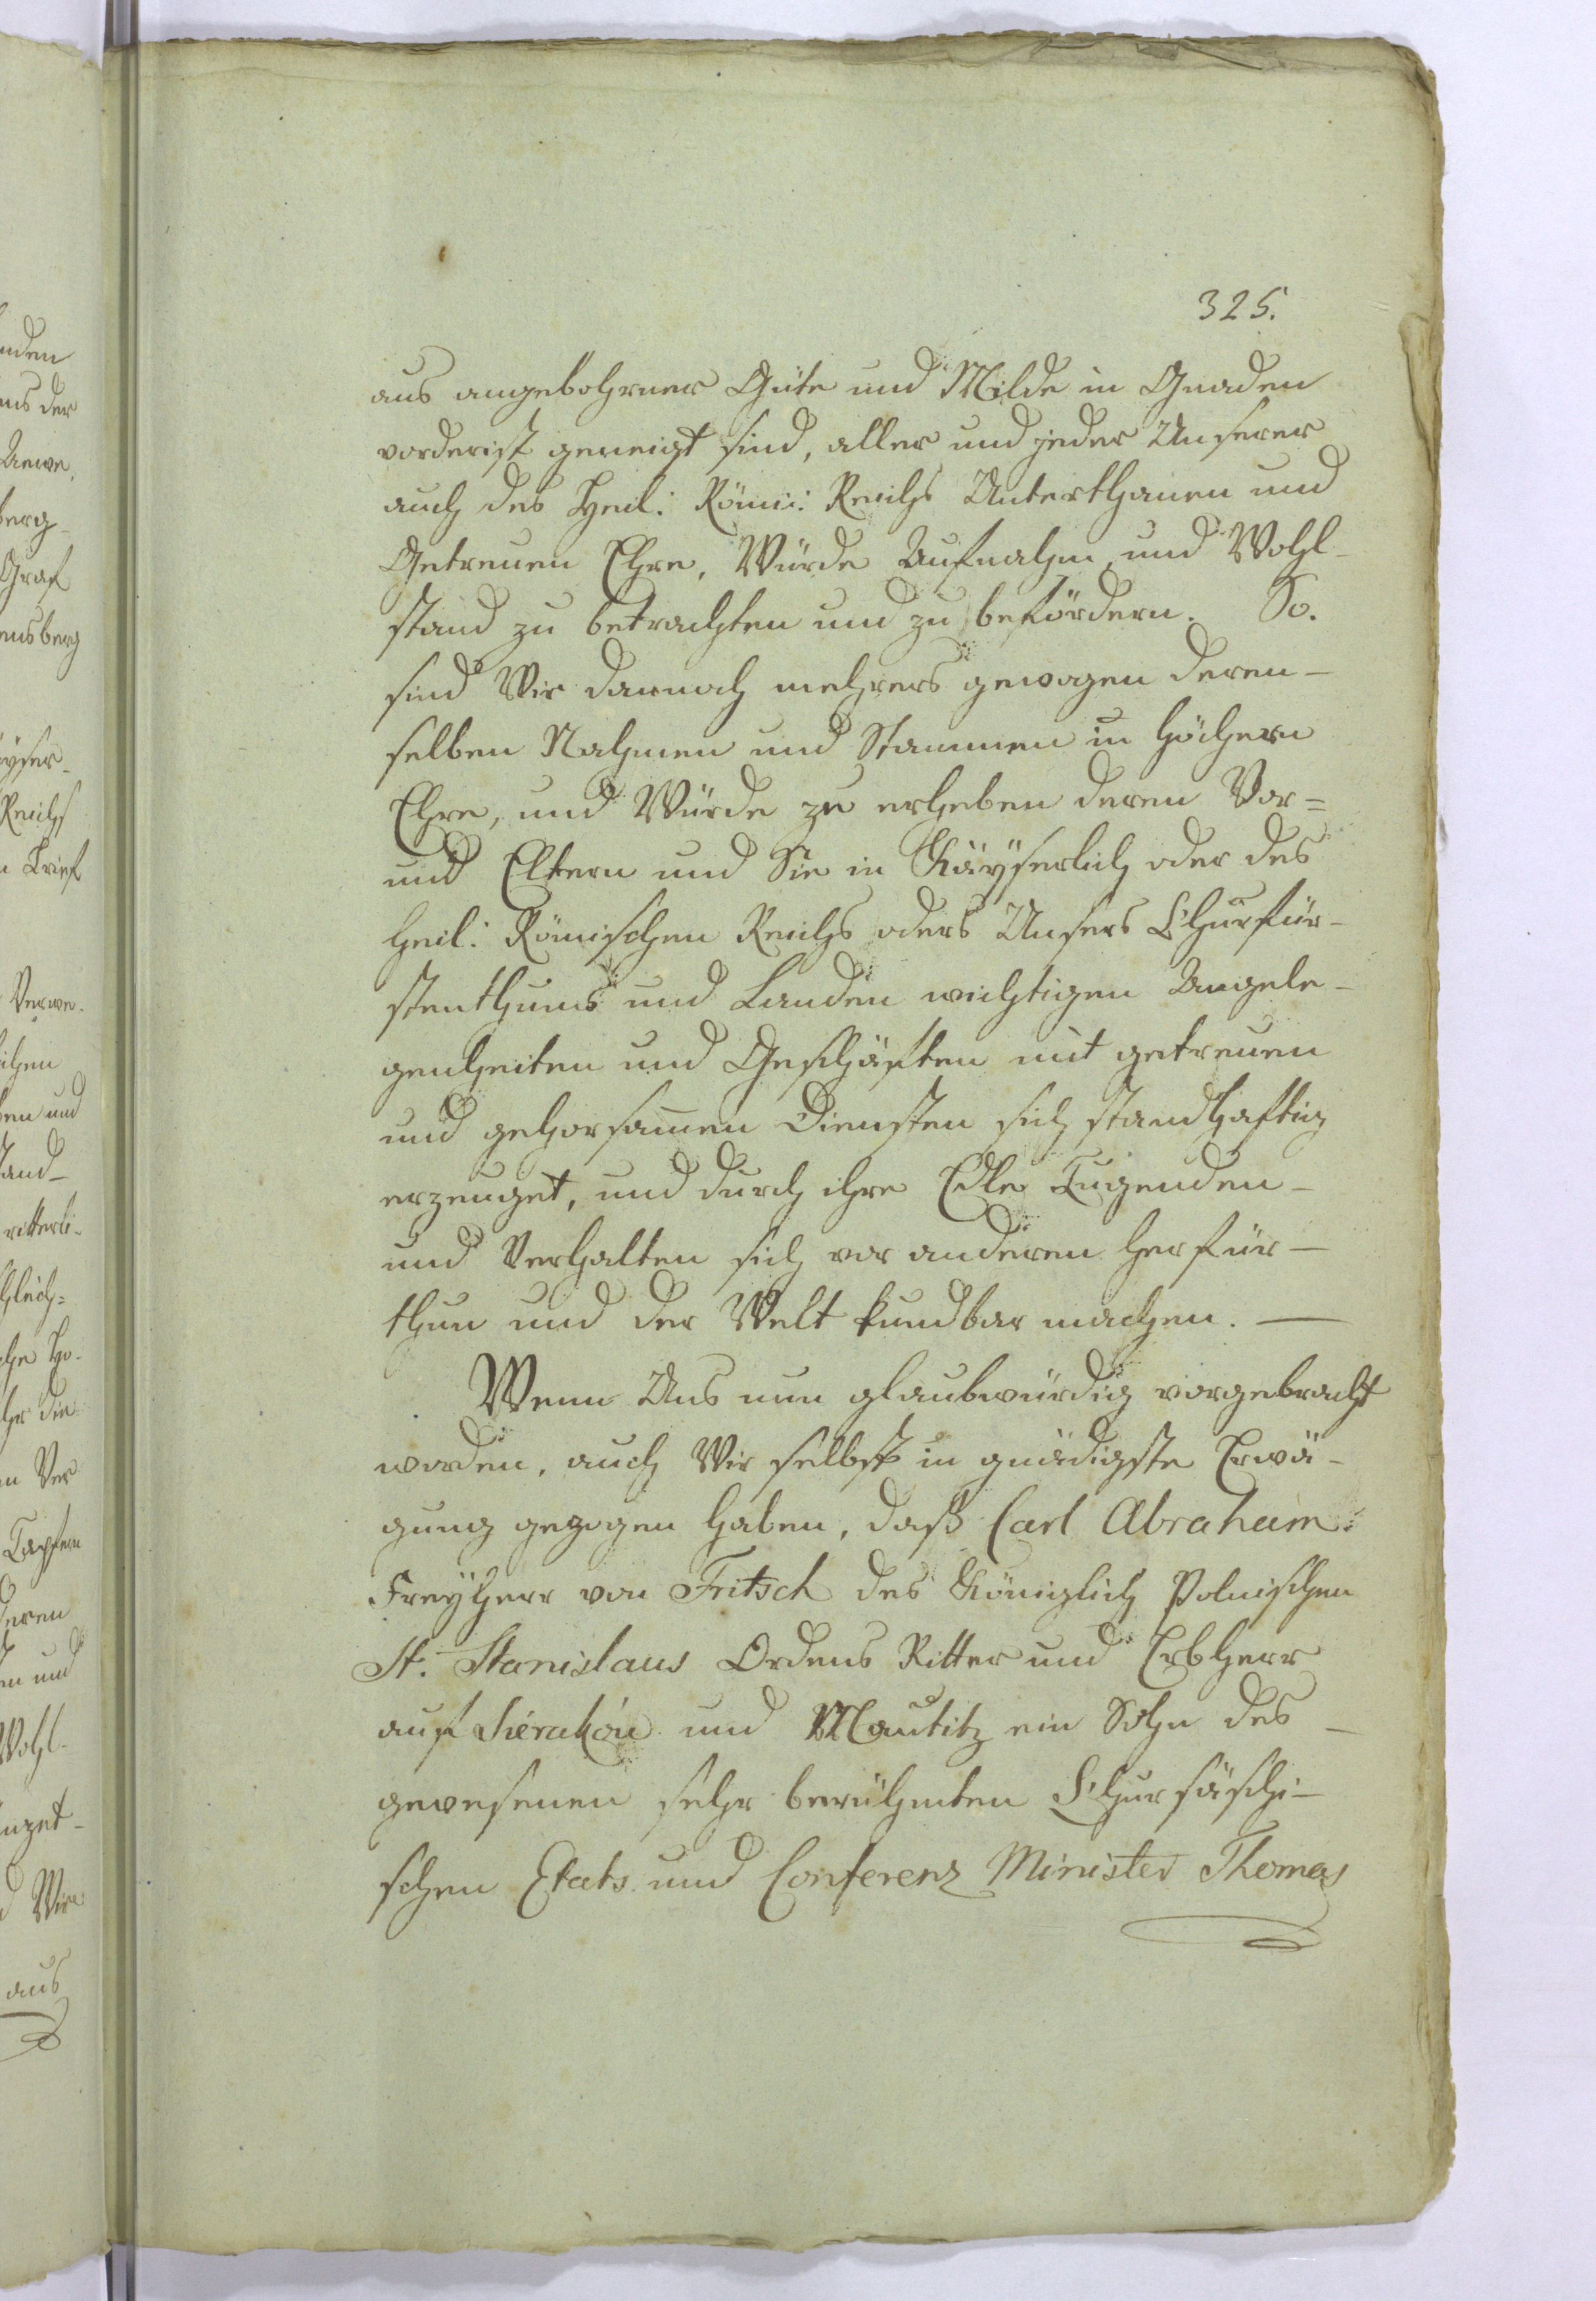 nden
ns der
Anwe,
berg-
Graf
ensberg
äyser-
Reichs
Brief
Verwe-
ichen
ben und
tand-
ritterli-
Glich-
che Ho-
hr die
n Ver
Tapfern
deren
en und
Wohl-
nzet-
d Wir
aus
325.
aus angebohrner Güte und Milde in Gnaden
vorderist geneigt sind, aller und jeder Unserer
auch des Heil: Römi: Reichs Unterthanen und
Getreuen Ehre, Würde Aufnahm, und Wohl-
stand zu betrachten und zu befördern. So.
sind Wir dannoch mehrers gewogen deren-
selben Nahmen und Stammen in höchern
Ehre, und Würde zu erheben deren Vor=
und Eltern und Sie in Kayserlich oder des
heil: Römischen Reichs oders Unsers Churfür-
stenthums und Landen wichtigen Angele-
genheiten und Geschäften mit getreuen
und gehorsamen Diensten sich standhaftig
erzeuget, und durch ihre Edle Tugenden-
und Verhalten sich vor anderen herfür-
thun und der Welt kundbar machen. —
Wenn Uns nun glaubwürdig vorgebracht
worden, auch Wir selbst in gnädigste Erwä-
gung gezogen haben, daß Carl Abraham
Freyherr von Fritsch des Königlich Polnischen
St. Stanislaus Ordens Ritter und Erbherr
auf und Mautitz ein Sohn des -
gewesenen sehr berühmten Chursäschi-
schen Etats und Conferenz Minister Thomas